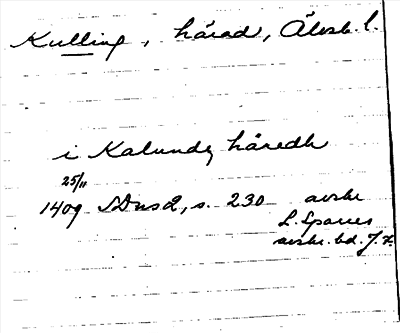 Kulling, härad, Älvsb. l.
i Kalundz häredh
25/11
1409 SDns 2, s. 230 avskr
L. Sparres
avskr. bd. J. F.